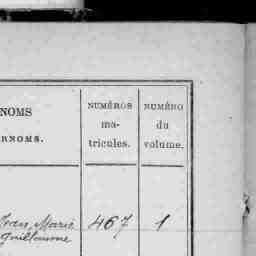 NOMS
RNOMS.
NUMÉROS
ma-
tricules.
NUMÉRO
du
volume.
Jean, Marie
Guillaume
467
1